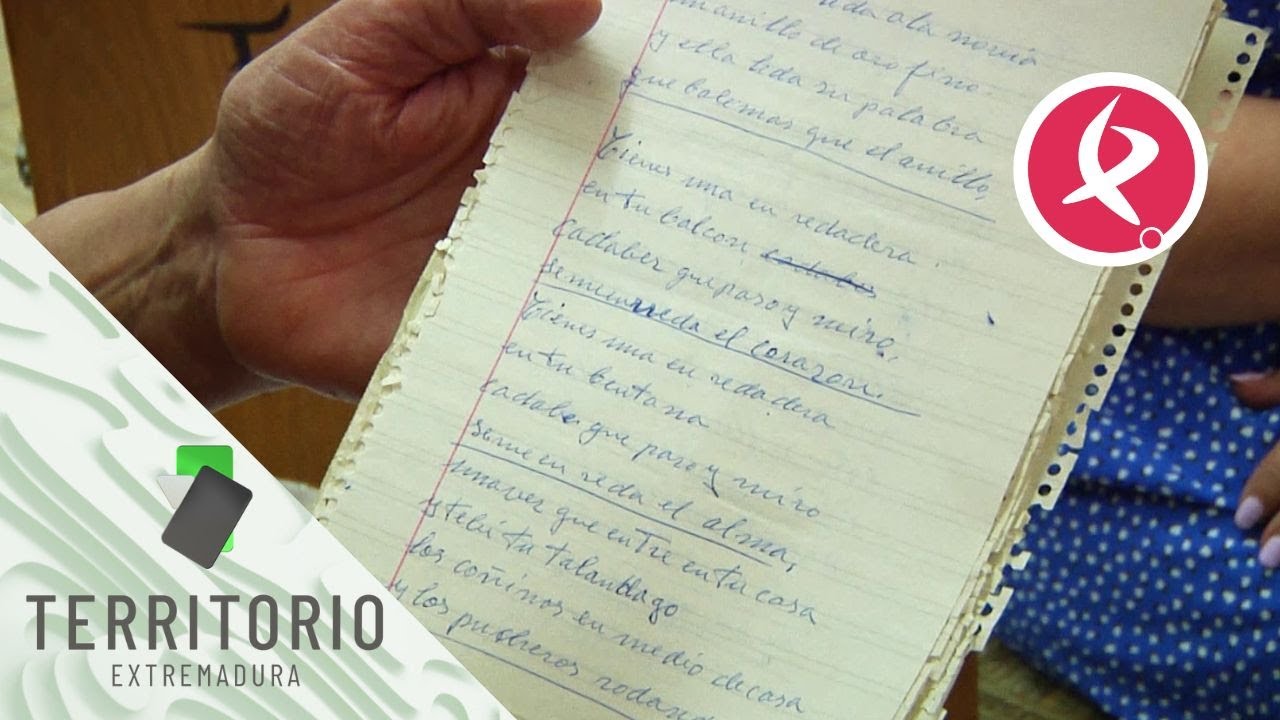 eda a la novia
un anillo de oro fino.
y ella leda su palabra
que bolemas que el anillo,
Tienes una en redadera.
en tu balcon cadabes
cadabez que paso y miro,
se me enrreda el corazon.
Tienes una en redadera
en tu bentana
cadabe que paso y miro
seme en reda el alma,
unaves que entre en tu casa
y telvi tu talantlago
los coñinos en medio decasa
y los pucheros rodand
TERRITORIO
EXTREMADURA